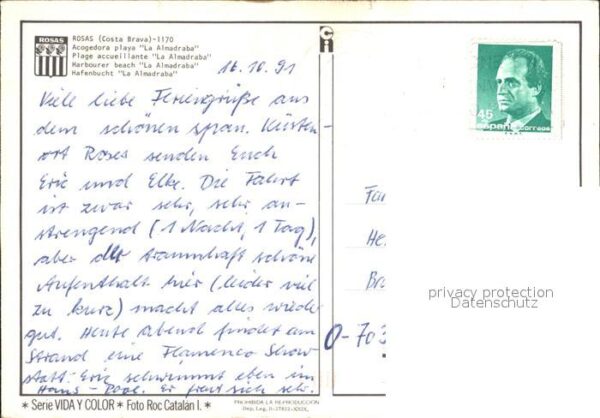 ROSAS
ROSAS (Costa Brava)-1170
Acogedora playa "La Almadraba"
Plage accueillante "La Almadraba"
Harbourer beach "La Almadraba"
Hafenbucht "La Almadraba"
16.10.91
Viele liebe Feriengrüße aus
dem schönen span. Küsten-
ort Roses senden Euch
Eric und Elke. Die Fahrt
ist zwar sehr, sehr an-
strengend (1 Nacht, 1 Tag),
aber der traumhaft schöne
Aufenthalt hier (leider viel
zu kurz) macht alles wieder
gut. Heute Abend findet am
Strand eine Flamenco Show
statt. Eric schwimmt eben im
Haus-Pool. Er freut sich sehr.
* Serie VIDA Y COLOR * Foto Roc Catalán I. *
PROHIBIDA LA REPRODUCCIÓN
Ci
45
ESPAÑA correos
Fa
He
Br
D-703
privacy protection
Datenschutz